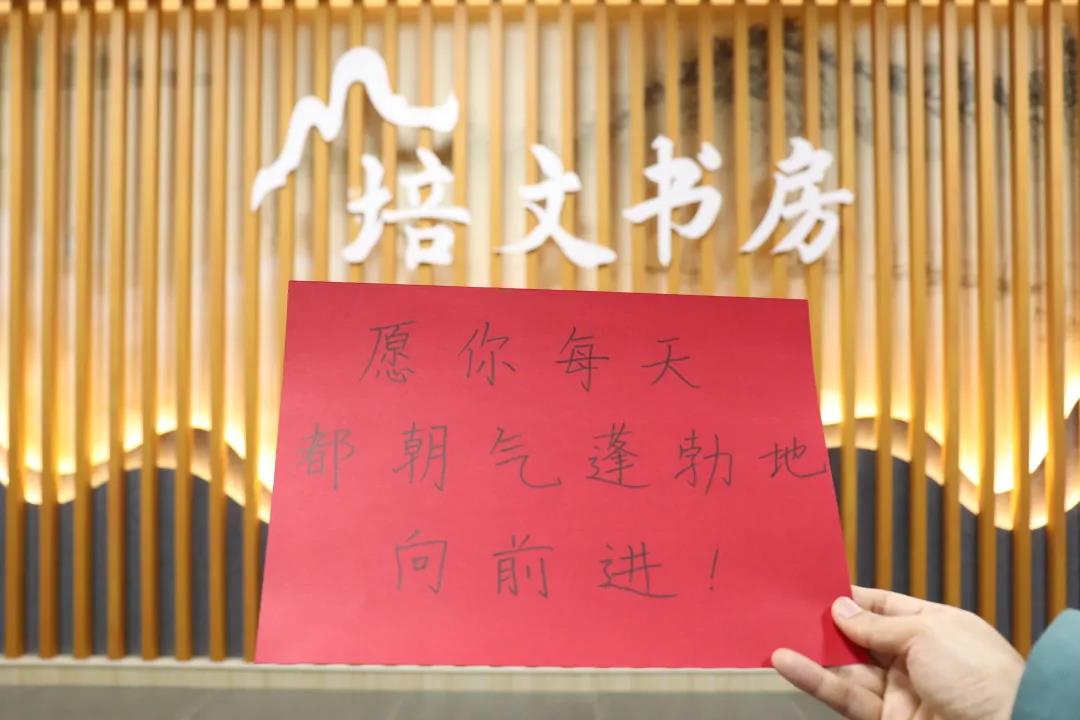 培文书房
愿你每天
都朝气蓬勃地
向前进!